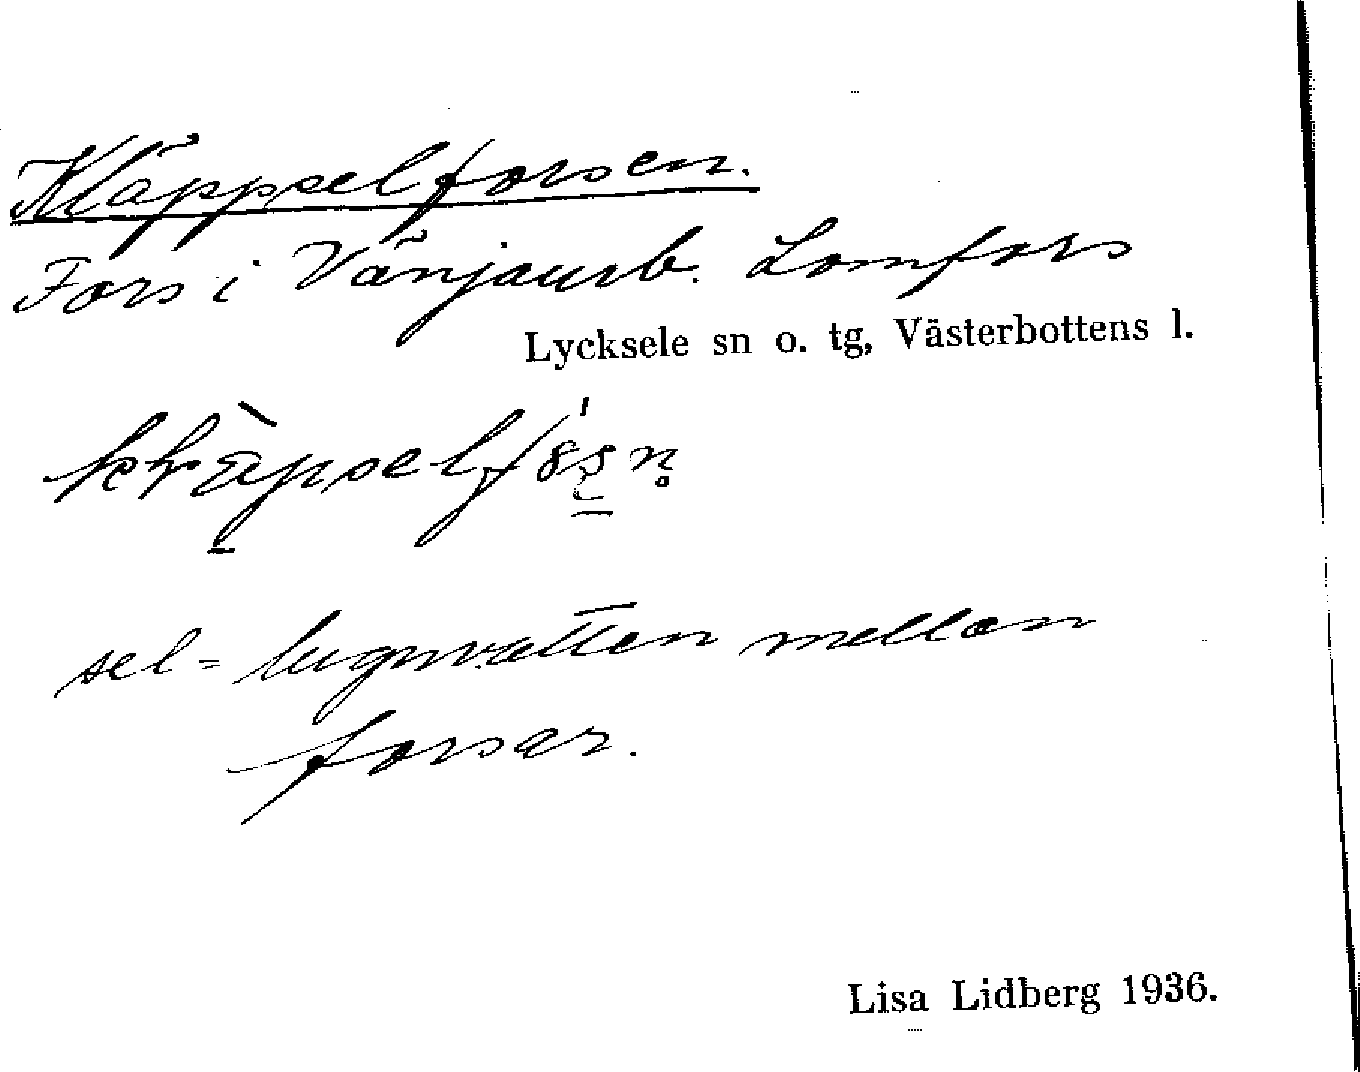 Kläppselforsen.
Fors i Vänjaurb. Lomfors
Lycksele sn o. tg, Västerbottens l.
sel = lugnvatten mellan
forsar.
Lisa Lidberg 1936.